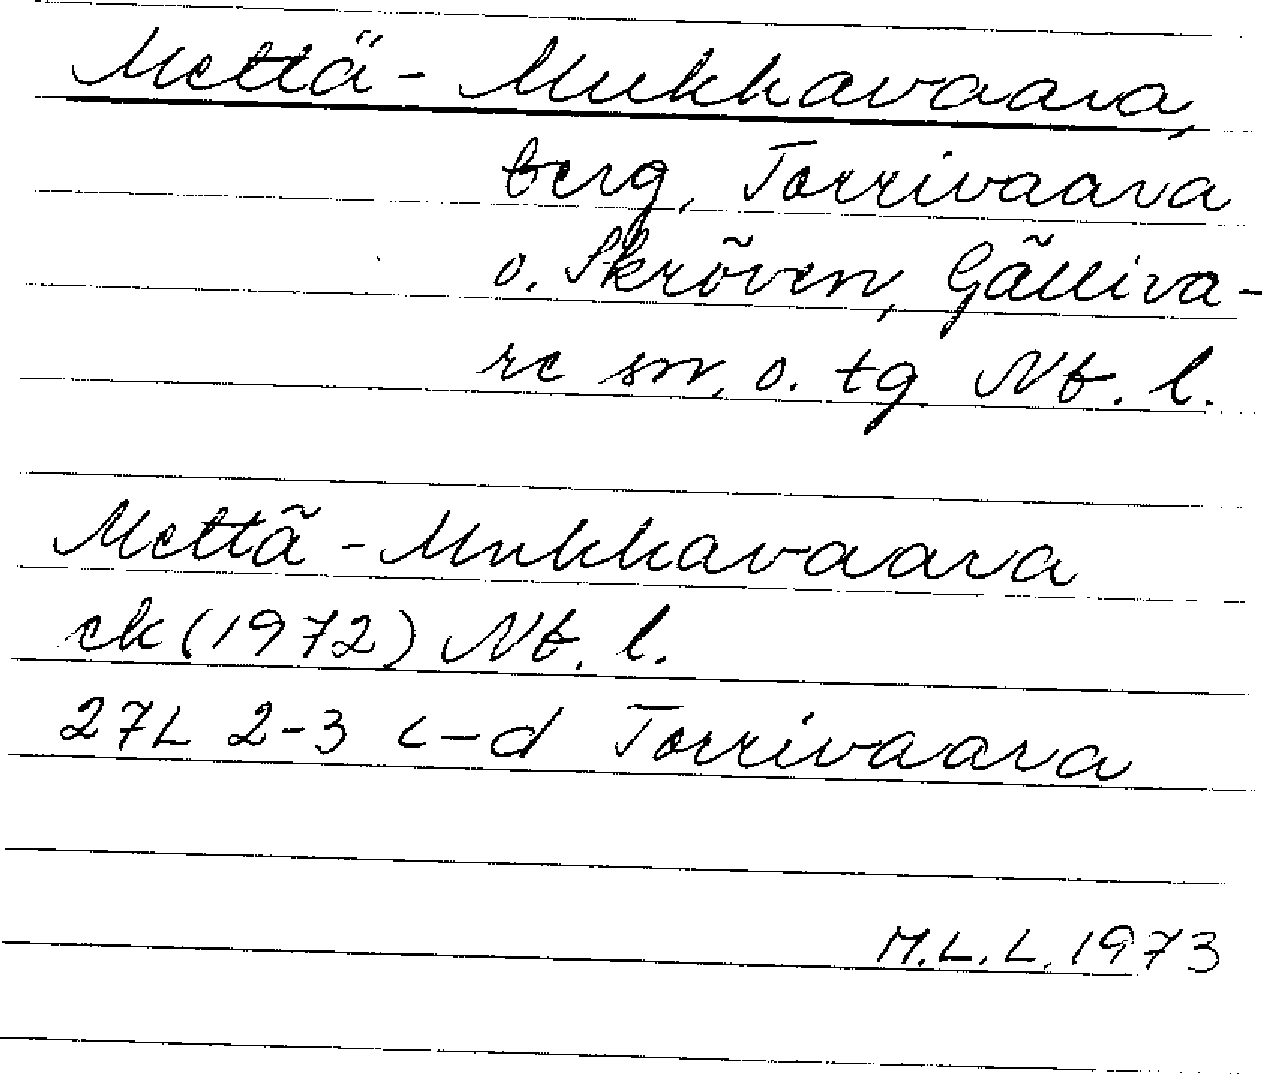 Mettä-Mukkavaara,
berg, Torrivaara
o. Skröven, Gälliva-
re sn, o. tg Nb. l.
Mettä-Mukkavaara
ek (1972) Nb. l.
27L 2-3 c-d Torrivaara
M.L.L. 1973